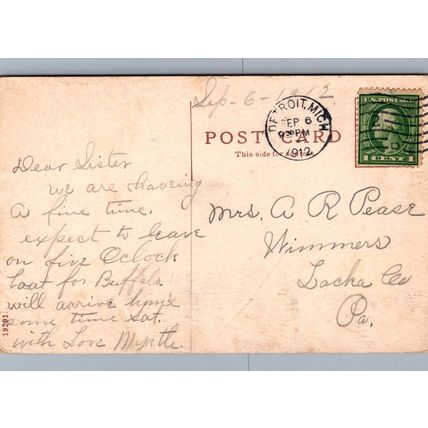 Sep-6-1912
DETROIT, MICH.
SEP 6
9 30 PM
1912
U.S. POSTAGE
1 CENT 1
POST CARD
This side for
Dear Sister
we are haveing
a fine time,
expect to leave
on five Oclock
boat for Buffalo
will arrive home
some time Sat.
with Love Myrtle.
Mrs. A R Pease
Wimmers
Lacka Co
Pa.
19291